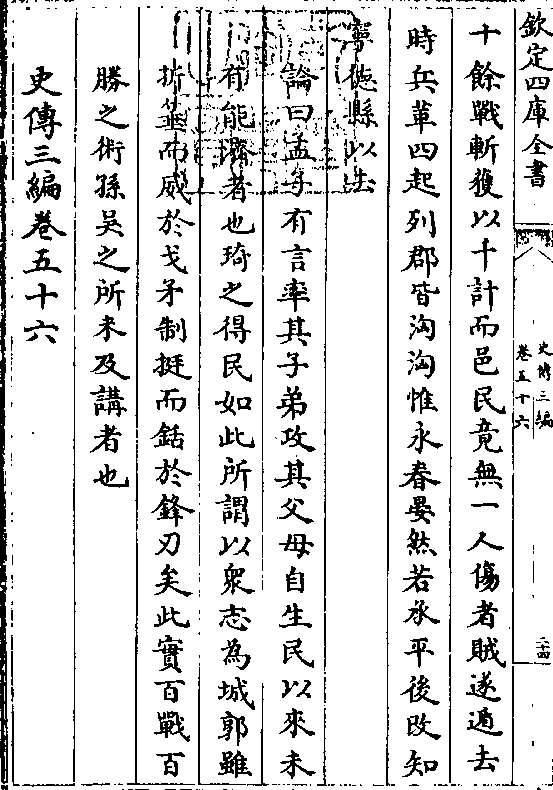 欽定四庫全書
史傳三編
卷五十六
二十四
十餘戰斬獲以千計而邑民竟無一人傷者賊遂遁去
時兵革四起列郡皆洶洶惟永春晏然若承平後改知
寧徳縣以去
論曰孟子有言率其子弟攻其父母自生民以來未
有能濟者也琦之得民如此所謂以衆志為城郭雖
折箠而威於戈矛制挺而銛於鋒刃矣此實百戰百
勝之術孫吴之所未及講者也
史傳三編卷五十六